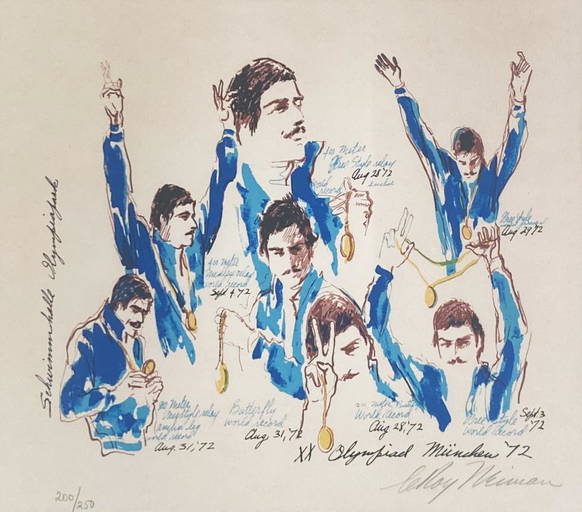 Schwimmhalle Olympiapark
400 Meter
Free Style relay
Aug 28 '72
World
record
anchor
Free style
Aug 29, 72
400 meter
Medley relay
World record
Sept 4, 72
Freestyle relay
record
Aug. 31, '72
Butterfly
World record
Aug 31, '72
World Record
Aug 28, '72
Free Style
World record
Sept 3
'72
XX Olympiad München '72
LeRoy Neiman
200/250